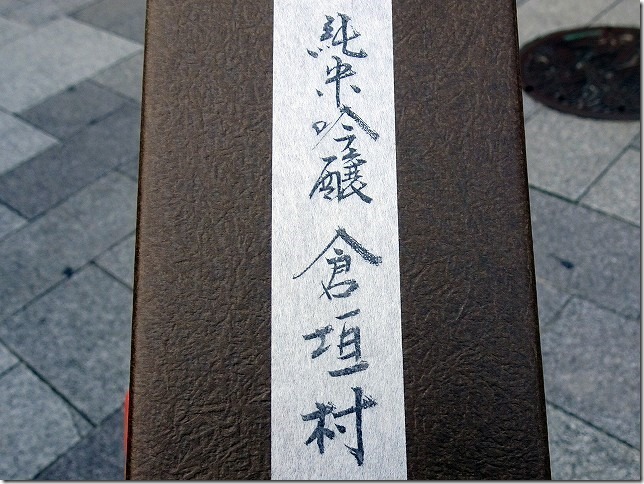 純米吟醸 倉垣村